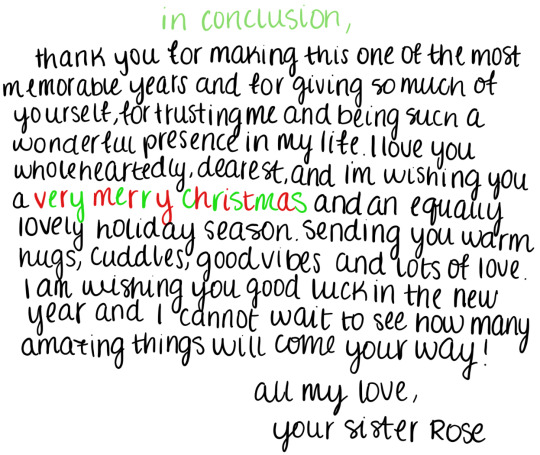 in conclusion,
thank you for making this one of the most
memorable years and for giving so much of
yourself, for trusting me and being such a
wonderful presence in my life. I love you
wholeheartedly, dearest, and im wishing you
a very merry christmas and an equally
lovely holiday season. Sending you warm
hugs, cuddles, good vibes and lots of love.
I am wishing you good luck in the new
year and I cannot wait to see how many
amazing things will come your way!
all my love,
your sister Rose